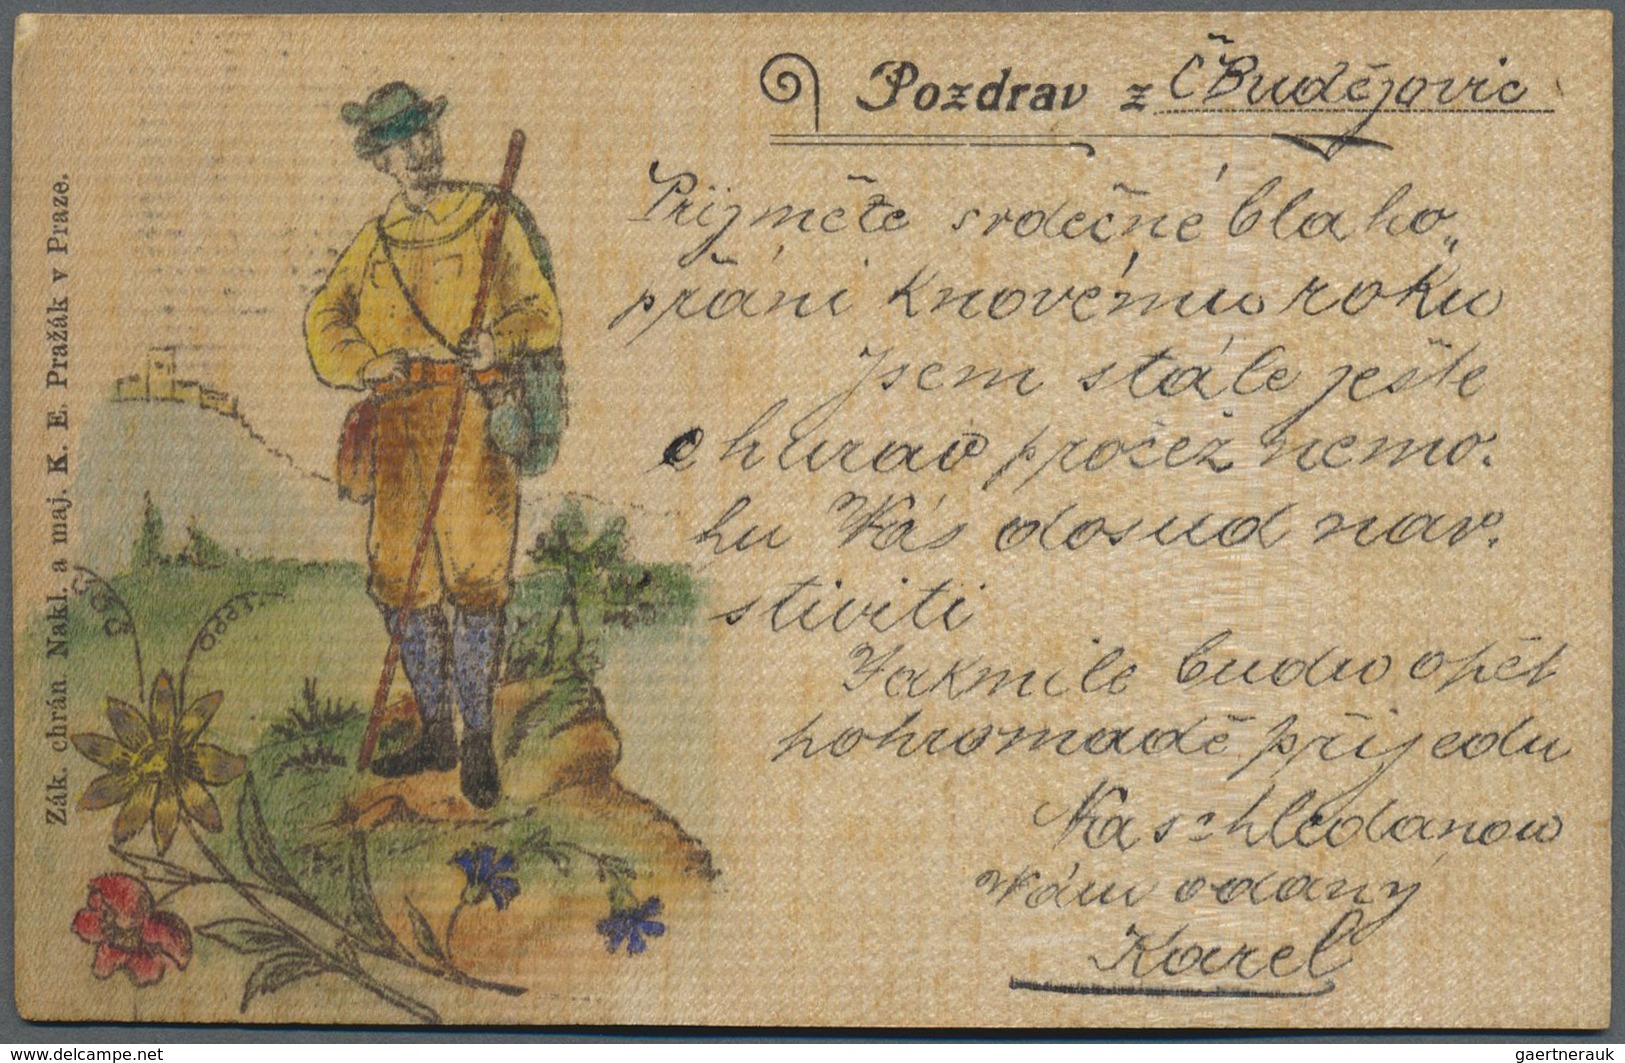 Pozdrav z Č Budějovic
Přijměte srdečné blaho„
přáni K novému roku
Jsem stále ješte
churav pročež nemo.
hu Vás dosud nav.
stiviti
Jakmile budu opět
pohromadě přijedu
Na schledanou
Vám oddaný
Karel
Zák. chrán. Nakl. a maj. K. E. Pražák v Praze.
www.delcampe.net
gaertnerauk